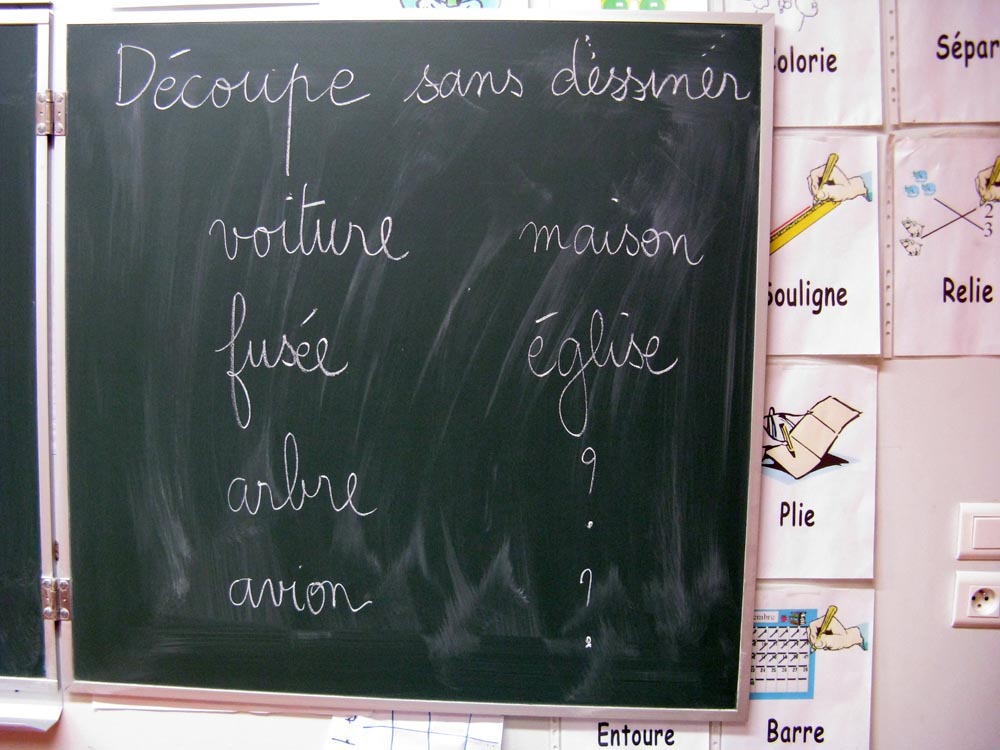 Découpe sans déssinér
voiture maison
fusée église
arbre ?
avion ?
olorie
Sépar
Souligne
Relie
2
3
Plie
Entoure
Barre